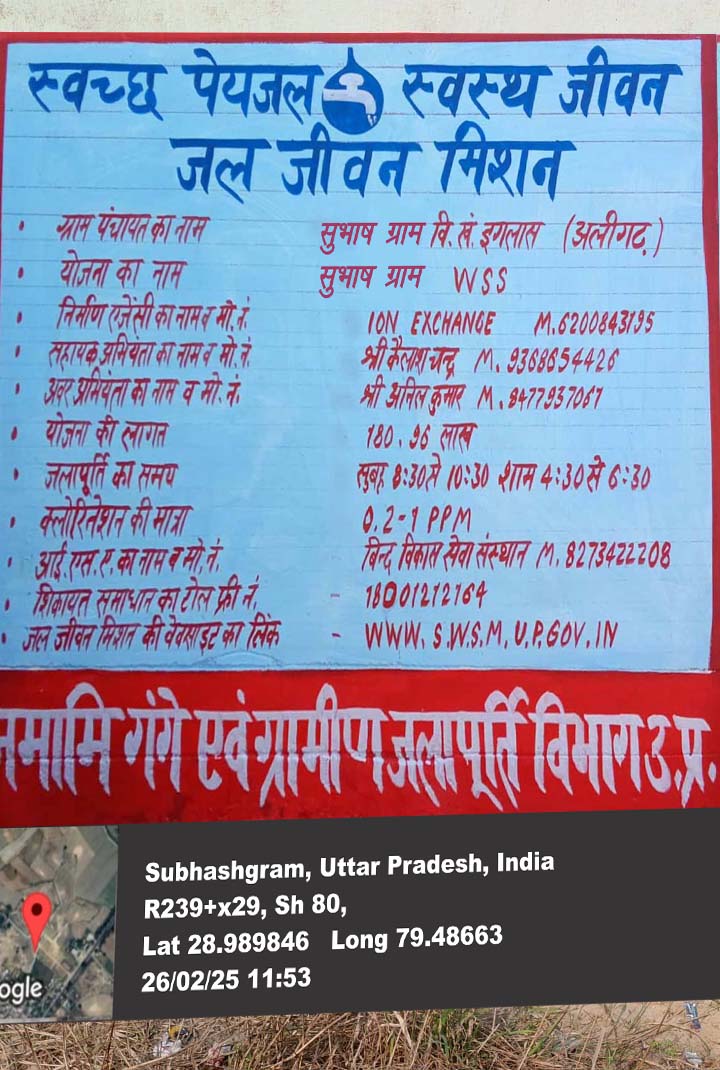 स्वच्छ पेयजल स्वस्थ जीवन
जल जीवन मिशन
• ग्राम पंचायत का नाम सुभाष ग्राम वि. खं. इगलास (अलीगढ़)
• योजना का नाम सुभाष ग्राम WSS
• निर्माण एजेंसी का नाम व मो. नं. ION EXCHANGE M.6200843195
• सहायक अभियंता का नाम व मो. नं. श्री कैलाश चन्द्र M. 9368654426
• अवर अभियंता का नाम व मो. नं. श्री अनिल कुमार M. 8477937067
• योजना की लागत 180.96 लाख
• जलापूर्ति का समय सुबह 8:30 से 10:30 शाम 4:30 से 6:30
• क्लोरिनेशन की मात्रा 0.2-1 PPM
• आई. एस. ए. का नाम व मो. नं. बिन्द विकास सेवा संस्थान M. 8273422208
• शिकायत समाधान का टोल फ्री नं. - 18001212164
• जल जीवन मिशन की वेवसाइट का लिंक - WWW.S.W.S.M.U.P.GOV.IN
नमामि गंगे एवं ग्रामीण जलापूर्ति विभाग उ.प्र.
Subhashgram, Uttar Pradesh, India
R239+x29, Sh 80,
Lat 28.989846 Long 79.48663
26/02/25 11:53
ogle